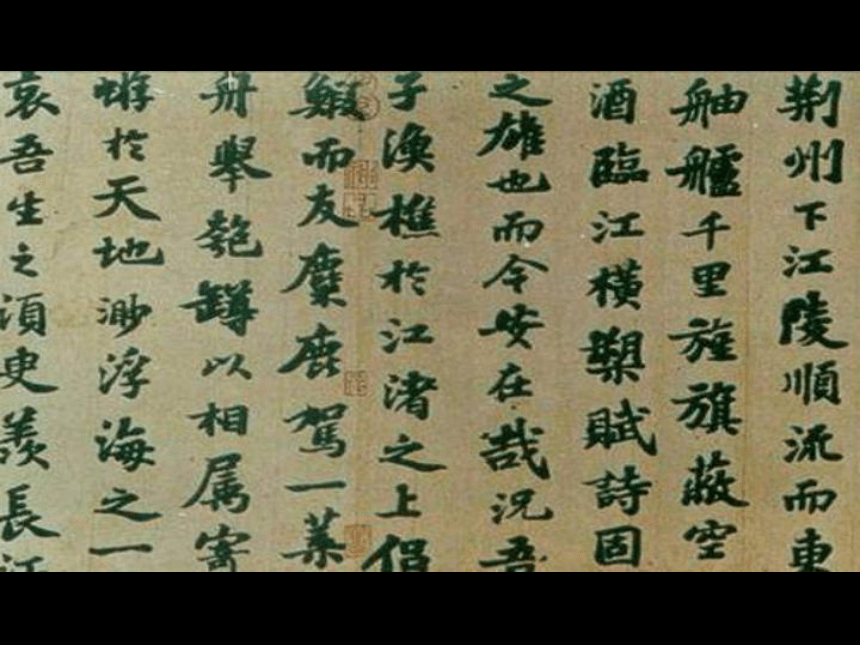 荆州下江陵順流而東
舳艫千里旌旗蔽空
酒臨江橫槊賦詩固
之雄也而今安在哉況吾
子漁樵於江渚之上侣
鰕而友麋鹿駕一葉
舟舉匏罇以相属寄
蝣於天地渺浮海之一
哀吾生之須臾羨長江